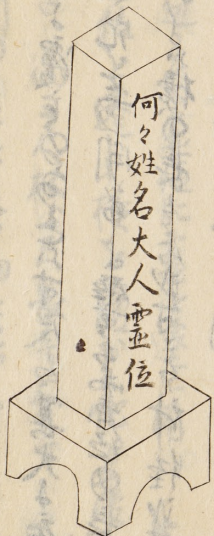 何々姓名大人霊位